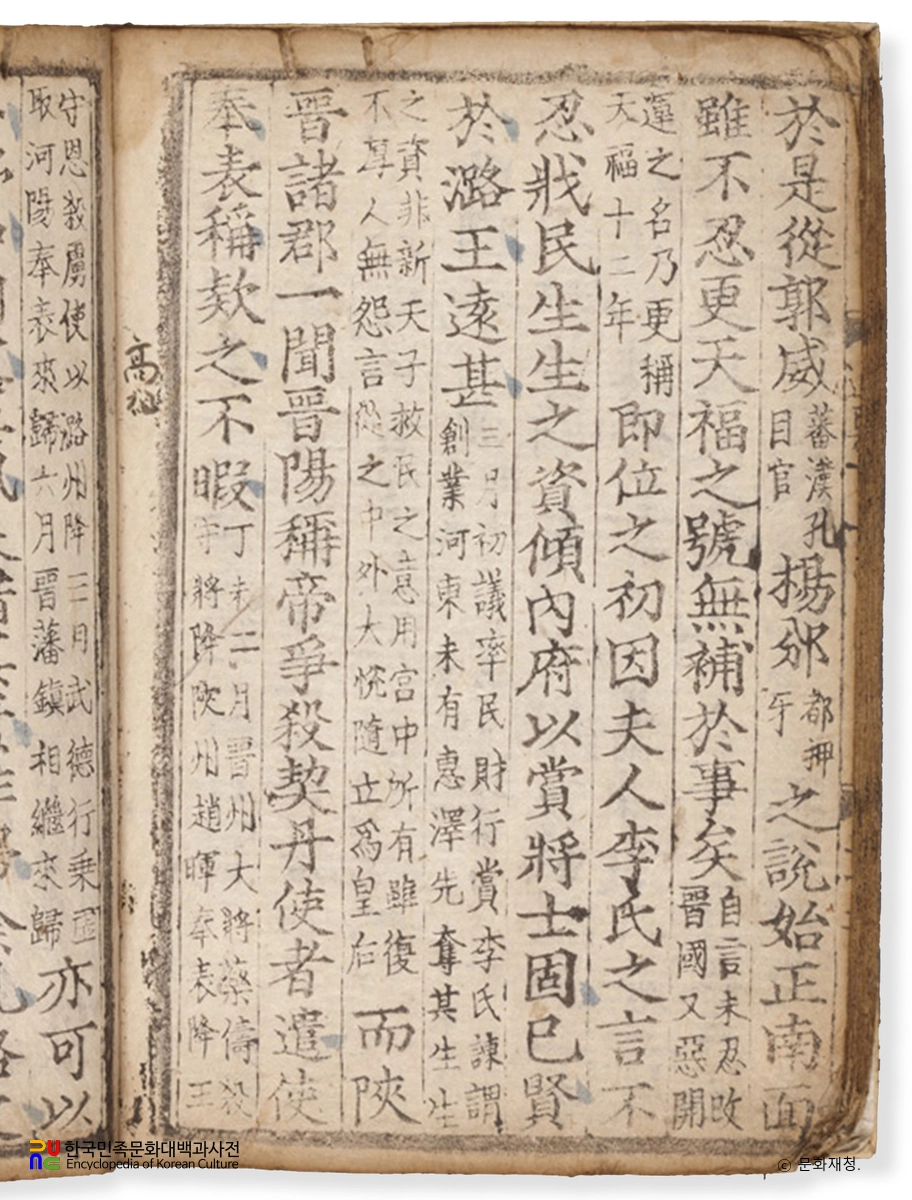 於是從郭威蕃漢孔目官楊邠都押牙之說始正南面
雖不忍更天福之號無補於事矣自言未忍改晉國又惡開
運之名乃更稱天福十二年即位之初因夫人李氏之言不
忍戕民生生之資傾內府以賞將士固已賢
於潞王遠甚三月初議率民財行賞李氏諫謂創業河東未有惠澤先奪其生生
之資非新天子救民之意用宮中所有雖復不厚人無怨言從之中外大悅隨立爲皇后而陝
晉諸郡一聞晉陽稱帝爭殺契丹使者遣使
奉表稱欵之不暇丁未二月晉州大將藥儔殺將降陝州趙暉奉表降王
守恩殺虜使以潞州降三月武德行乗
取河陽奉表來歸六月晉藩鎮相繼來歸亦可以
高祖
한국민족문화대백과사전
Encyclopedia of Korean Culture
© 문화재청.